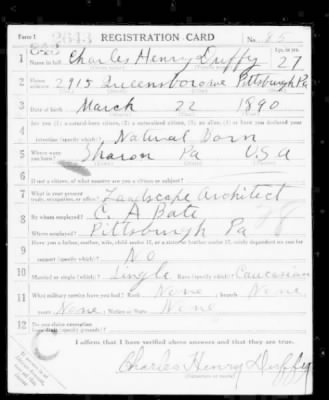 Form 1 2643 REGISTRATION CARD No. 85
843
1 Name in full Charles Henry Duffy Age, in yrs. 27
2 Home address 2915 Queensboro ave Pittsburgh Pa
3 Date of birth March 22 1890
4 Are you (1) a natural-born citizen, (2) a naturalized citizen, (3) an alien, (4) or have you declared your
intention (specify which)? Natural Born
5 Where were you born? Sharon Pa USA
6 If not a citizen, of what country are you a citizen or subject?
7 What is your present trade, occupation, or office? Landscape Architect
8 By whom employed? C. A Bate
Where employed? Pittsburgh Pa
9 Have you a father, mother, wife, child under 12, or a sister or brother under 12, solely dependent on you for
support (specify which)? No
10 Married or single (which)? Single Race (specify which)? Caucasian
11 What military service have you had? Rank None ; branch None
years None ; Nation or State None
12 Do you claim exemption from draft (specify grounds)?
I affirm that I have verified above answers and that they are true.
Charles Henry Duffy
(Signature or mark)